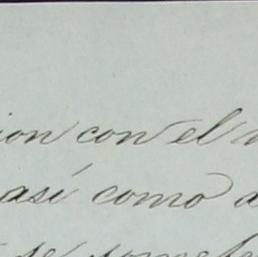 ion con el
así como a
se